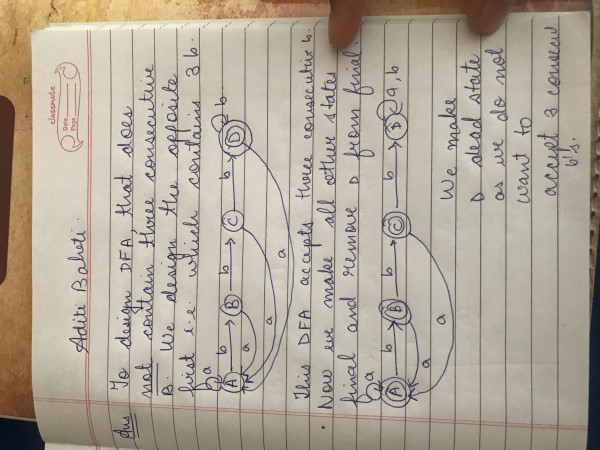 classmate
Date
Page
Aditi Baheti.
Ans To design DFA, that does
not contain three consecutive
B. We design the opposite
first i.e. which contains 3 b.
a
A b B b C b D b
a
a
a
This DFA accepts three consecutive b.
• Now we make all other states
final and remove D from final.
a
A b B b C b D a, b
a
a
We make
D dead state
as we do not
want to
accept 3 consecu
b's.